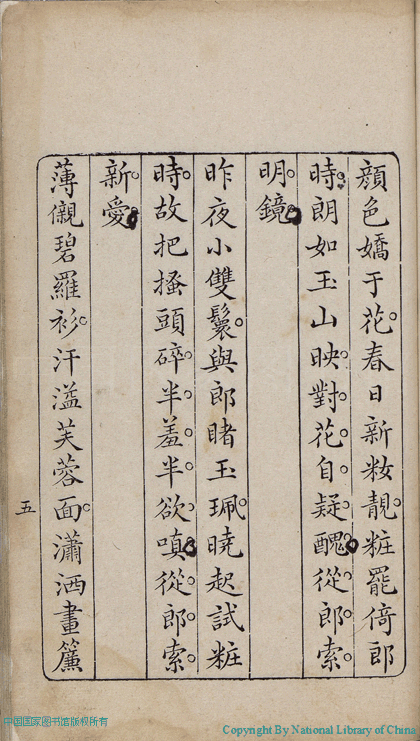 顔色嬌于花春日新妝靚粧罷倚郎
時朗如玉山映對花自疑醜從郎索
明鏡
昨夜小雙鬟與郎賭玉珮曉起試粧
時故把搔頭碎半羞半欲嗔從郎索
新愛
薄儭碧羅衫汗溢芙蓉面瀟洒畫簾
五
中国国家图书馆版权所有
Copyright By National Library of China